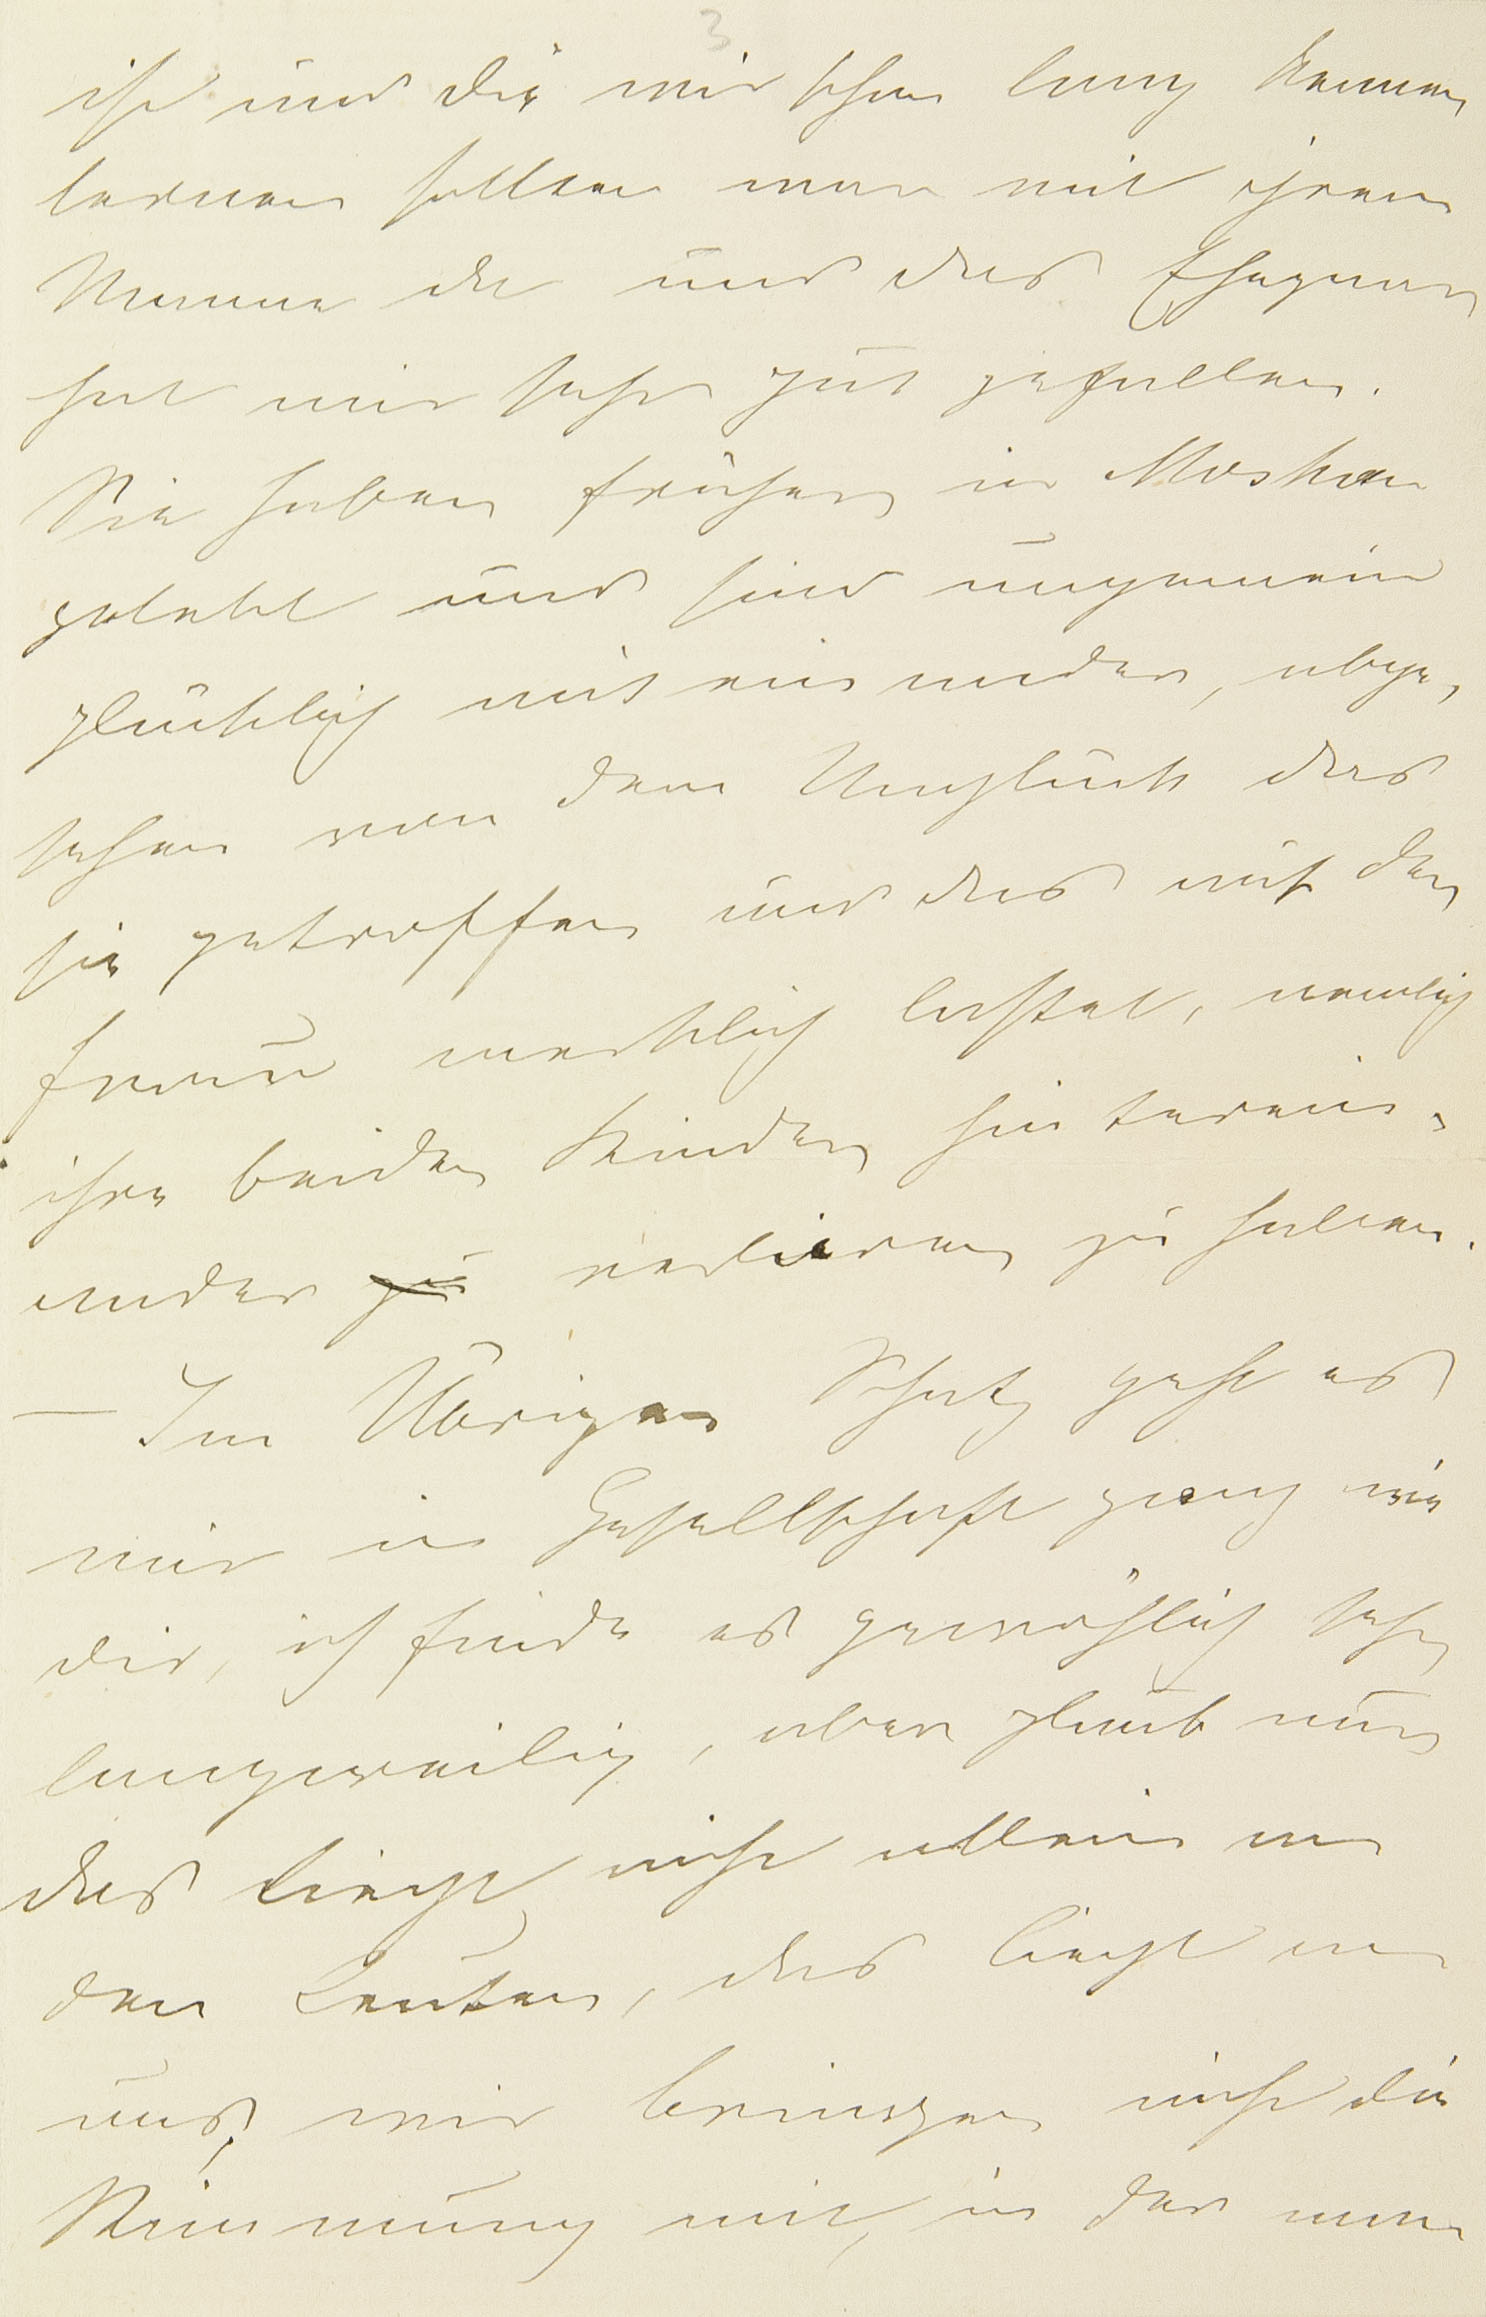 3
ist und die wir schon lang kennen
lernen sollten war mit ihrem
Manne da und das Ehepaar
hat mir sehr gut gefallen.
Sie haben früher in Moskau
gelebt und sind ungemein
glücklich mit einander, abge-
sehen von dem Unglück das
sie getroffen und das auf der
Frau merklich lastet, nemlich
ihre beiden Kinder hinterein-
ander zu verlieren zu haben.
— Im Übrigen Schatz geht es
mir in Gesellschaft ganz wie
dir, ich finde es gewöhlich sehr
langweilig, aber glaub nur
das liegt nicht allein an
den Leuten, das liegt an
uns, wir bringen nicht die
Stimmung mit, in der man